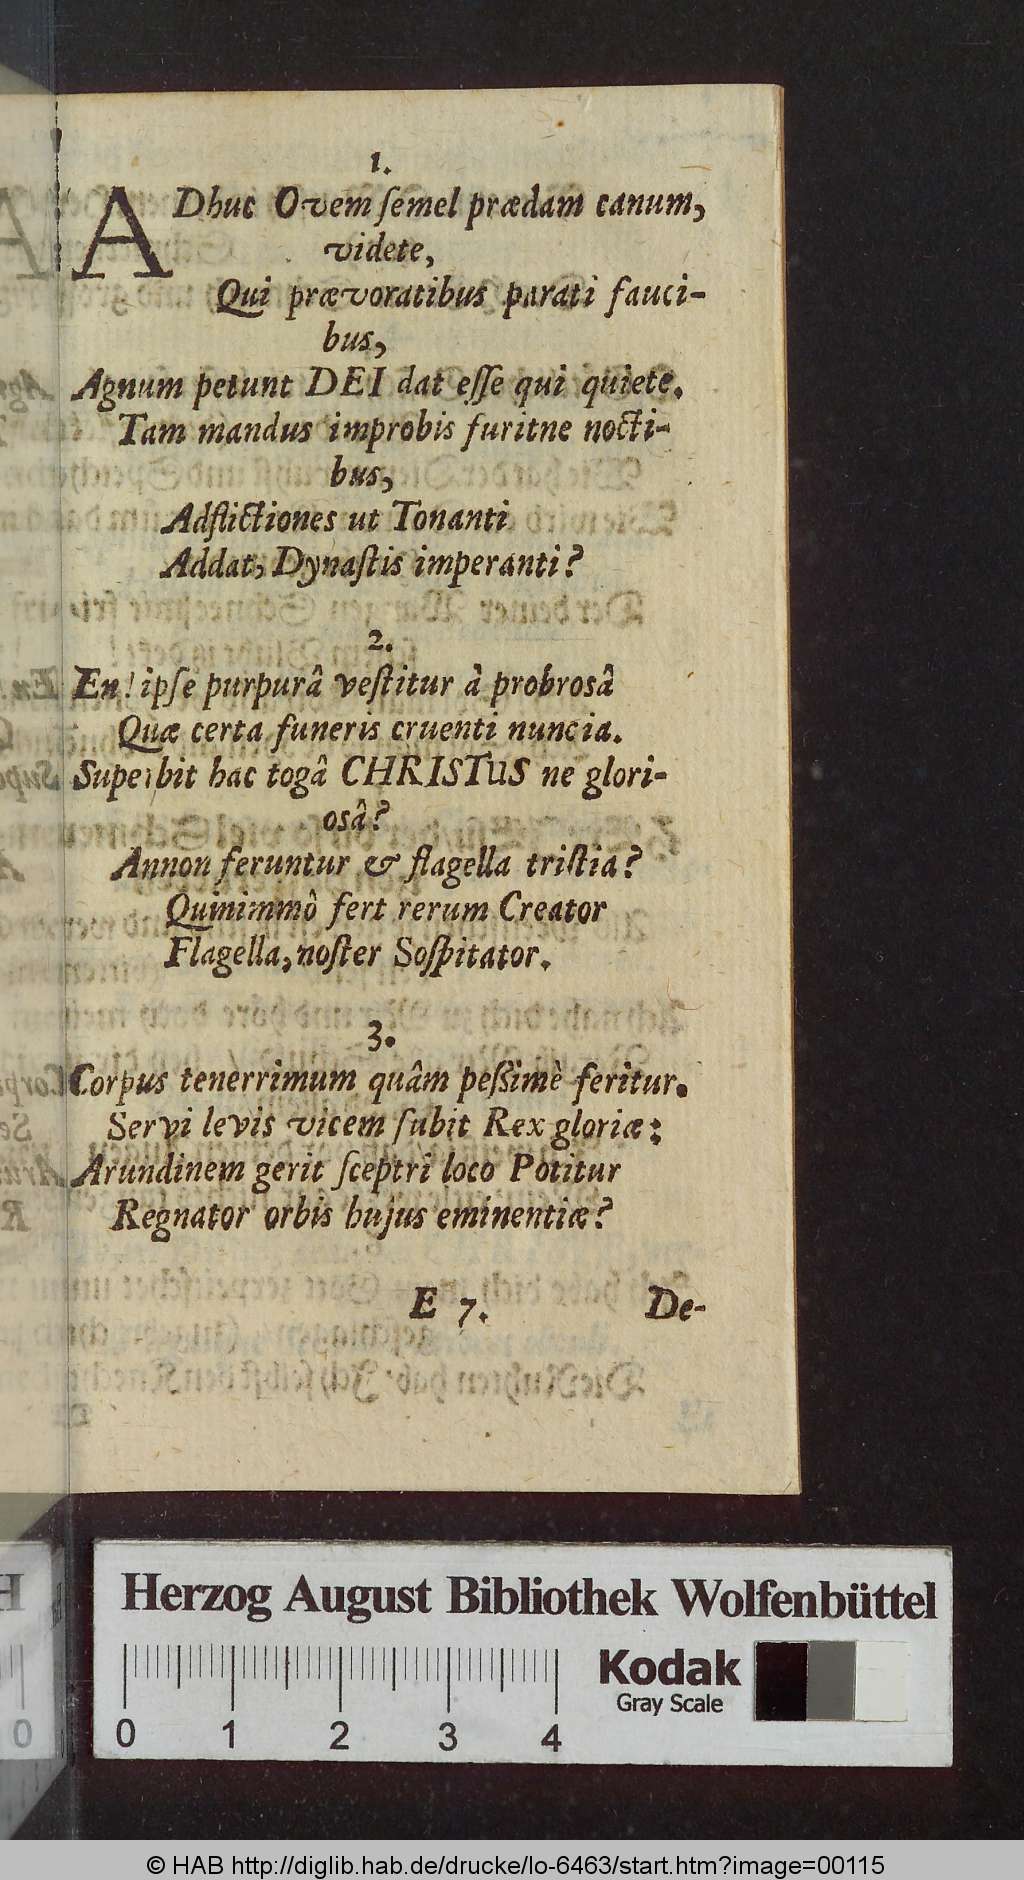 1.
ADhuc Ovem ſemel prædam canum,
videte,
Qui prævoratibus parati fauci-
bus,
Agnum petunt DEI dat eſſe qui quiete.
Tam mandus improbis furitne nocti-
bus,
Adflictiones ut Tonanti
Addat, Dynaſtis imperanti?
2.
En! ipſe purpurâ veſtitur à probrosâ
Quæ certa funeris cruenti nuncia.
Superbit hac togâ CHRISTUS ne glori-
osâ?
Annon feruntur & flagella triſtia?
Quinimmò fert rerum Creator
Flagella, noſter Soſpitator.
3.
Corpus tenerrimum quâm peſſimè feritur.
Servi levis vicem ſubit Rex gloriæ:
Arundinem gerit ſceptri loco Potitur
Regnator orbis hujus eminentiæ?
E 7. De-
Herzog August Bibliothek Wolfenbüttel
Kodak
Gray Scale
0 1 2 3 4
© HAB http://diglib.hab.de/drucke/lo-6463/start.htm?image=00115